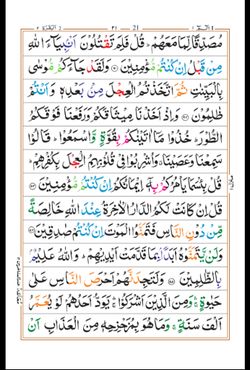 الٓمّٓ ١
21
٢١
مُصَدِّقًا لِّمَا مَعَهُمْ ؕ قُلْ فَلِمَ تَقْتُلُوْنَ اَنْۢبِيَآءَ اللّٰهِ
مِنْ قَبْلُ اِنْ كُنْتُمْ مُّؤْمِنِيْنَ ۝ وَلَقَدْ جَآءَكُمْ مُّوْسٰى
بِالْبَيِّنٰتِ ثُمَّ اتَّخَذْتُمُ الْعِجْلَ مِنْۢ بَعْدِهٖ وَاَنْتُمْ
ظٰلِمُوْنَ ۝ وَاِذْ اَخَذْنَا مِيْثَاقَكُمْ وَرَفَعْنَا فَوْقَكُمُ
الطُّوْرَ ؕ خُذُوْا مَآ اٰتَيْنٰكُمْ بِقُوَّةٍ وَّاسْمَعُوْا ؕ قَالُوْا
سَمِعْنَا وَعَصَيْنَا ۗ وَاُشْرِبُوْا فِيْ قُلُوْبِهِمُ الْعِجْلَ بِكُفْرِهِمْ ؕ
قُلْ بِئْسَمَا يَاْمُرُكُمْ بِهٖٓ اِيْمَانُكُمْ اِنْ كُنْتُمْ مُّؤْمِنِيْنَ ۝
قُلْ اِنْ كَانَتْ لَكُمُ الدَّارُ الْاٰخِرَةُ عِنْدَ اللّٰهِ خَالِصَةً
مِّنْ دُوْنِ النَّاسِ فَتَمَنَّوُا الْمَوْتَ اِنْ كُنْتُمْ صٰدِقِيْنَ ۝
وَلَنْ يَّتَمَنَّوْهُ اَبَدًۢا بِمَا قَدَّمَتْ اَيْدِيْهِمْ ؕ وَاللّٰهُ عَلِيْمٌۢ
بِالظّٰلِمِيْنَ ۝ وَلَتَجِدَنَّهُمْ اَحْرَصَ النَّاسِ عَلٰى
حَيٰوةٍ ۛۚ وَمِنَ الَّذِيْنَ اَشْرَكُوْا ۛۚ يَوَدُّ اَحَدُهُمْ لَوْ يُعَمَّرُ
اَلْفَ سَنَةٍ ۚ وَمَا هُوَ بِمُزَحْزِحِهٖ مِنَ الْعَذَابِ اَنْ